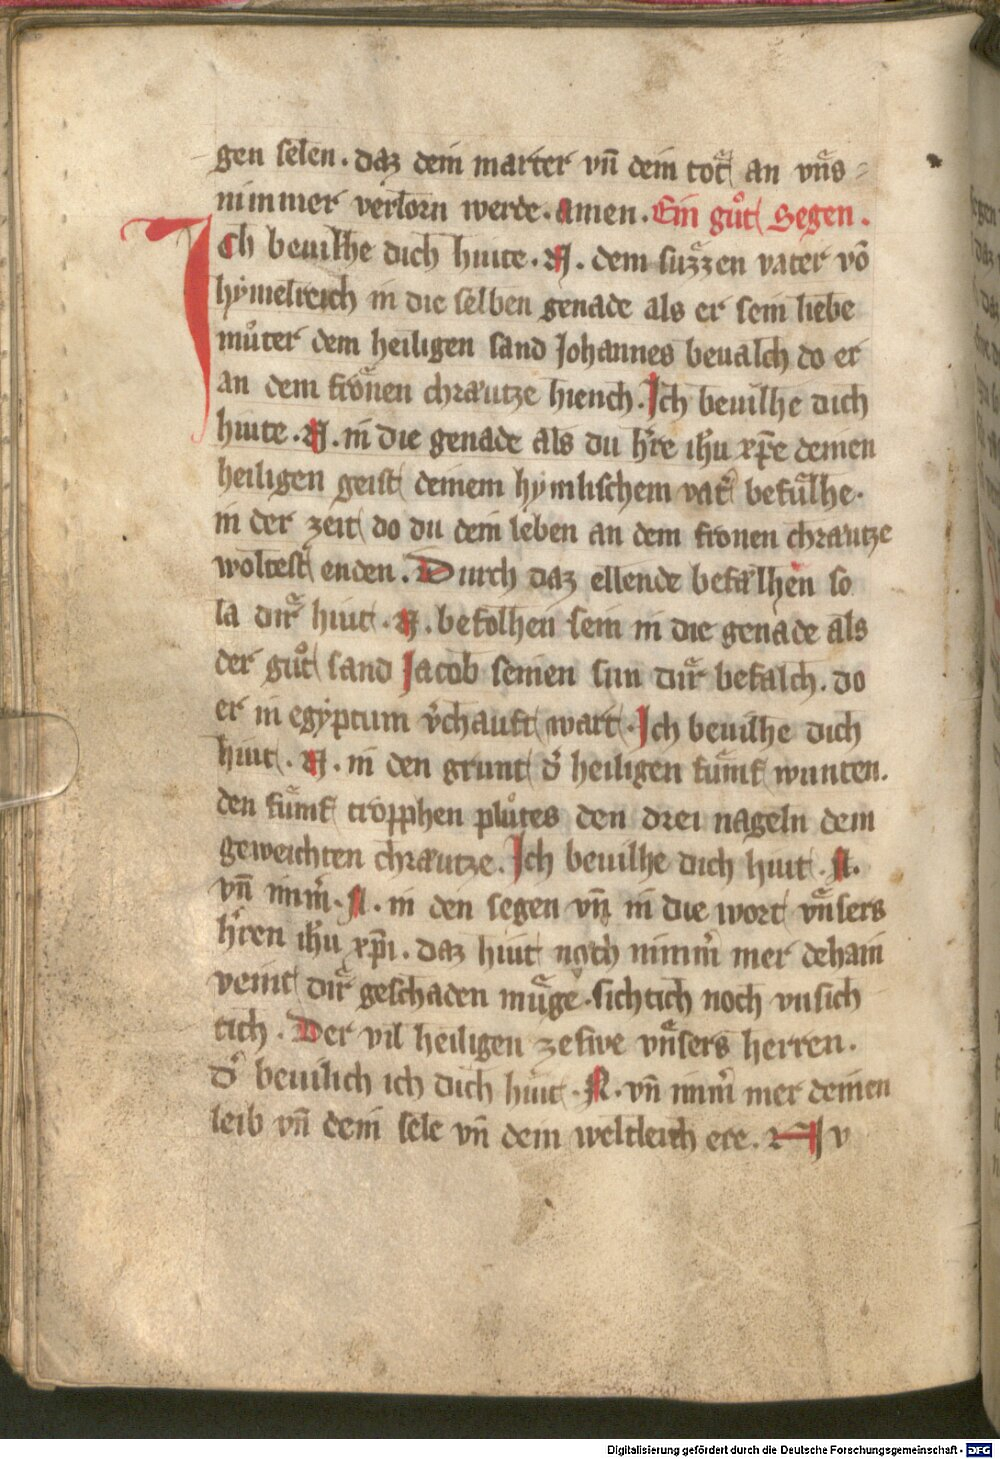 gen selen. daz dein marter vn̄ dein tot an vns
nimmer verlorn werde. amen. Ein gůt Segen.
Ich beuilhe dich hiute. N. dem suzzen vater võ
hymelreich in die selben genade als er sein liebe
můter dem heiligen sand Johannes beualch do er
an dem fronen chraͤutze hiench. Ich beuilhe dich
hiute. N. in die genade als du hr̄e ih̄u xp̄e deinen
heiligen geist deinem hymlischem vat̄ befulhe.
in der zeit do du dein leben an dem fronen chraͤutze
woltest enden. Durch daz ellende befaͤlhen so
la dir hiut. N. befolhen sein in die genade als
der gůt sand Jacob seinen sun dir befalch. do
er in egyptum v̄chauft wart. Ich beuilhe dich
hiut. N. in den grunt d̄ heiligen fumf wunten.
den fumf tropphen plůtes den drei nageln dem
geweichten chraͤutze. Ich beuilhe dich hiut. N.
vn̄ imm̄. N. in den segen vn̄ in die wort vnsers
hr̄en ih̄u xp̄i. daz hiut noch nimm̄ mer dehain
veint dir geschaden muge. sichtich noch vnsich
tich. Der vil heiligen zeswe vnsers herren.
d̄ beuilich ich dich hiut. N. vn̄ imm̄ mer deinen
leib vn̄ dein sele vn̄ dein weltleich ere. Nv
Digitalisierung gefördert durch die Deutsche Forschungsgemeinschaft - DFG